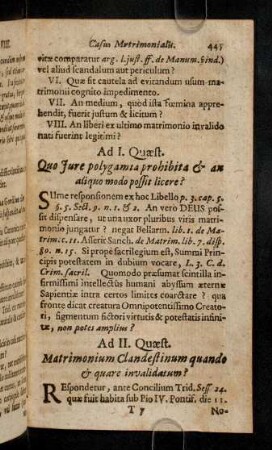 Casus Matrimonialis. 445
vitæ comparatur arg. l. just. ff. de Manum. §ind.)
vel aliud scandalum aut periculum?
VI. Quæ sit cautela ad evitandum usum matrimonii
cognito impedimento.
VII. An medium, quòd ista fœmina apprehendit,
fuerit justum & licitum?
VIII. An liberi ex ultimo matrimonio invalido
nati fuerint legitimi?
Ad I. Quæst.
Quo Jure polygamia prohibita & an
aliquo modo possit licere?
SUme responsionem ex hoc Libello p. 3. cap. 5.
§. 5. Sess. 9. n. 1. & 2. An verò DEUS possit
dispensare, ut una uxor pluribus viris matrimonio
jungatur? negat Bellarm. lib. 1. de Matrim.
c. 11. Asserit Sanch. de Matrim. lib. 7. disp.
80. n. 15. Si propè sacrilegium est, Summi Principis
potestatem in dubium vocare, L. 3. C. d.
Crim. sacril. Quomodo præsumat scintilla infirmissimi
intellectûs humani abyssum æternæ
Sapientiæ intra certos limites coarctare? qua
fronte dicat creatura Omnipotentissimo Creatori,
figmentum fictori virtutis & potestatis infinitæ,
non potes amplius?
Ad II. Quæst.
Matrimonium Clandestinum quando
& quare invalidatum?
REspondetur, ante Concilium Trid. Sess. 24.
quæ fuit habita sub Pio IV. Pontif. die 11.
T 7 No-